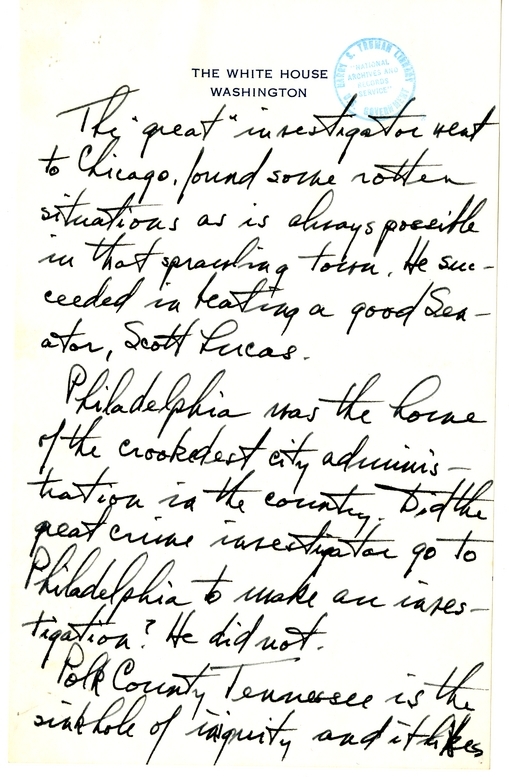 THE WHITE HOUSE
WASHINGTON
HARRY S. TRUMAN LIBRARY
"NATIONAL
ARCHIVES AND
RECORDS
SERVICE"
GOVERNMENT
The "great" investigator went
to Chicago, found some rotten
situations as is always possible
in that sprawling town. He suc-
ceeded in beating a good Sen-
ator, Scott Lucas.
Philadelphia was the home
of the crookedest city adminis-
tration in the country. Did the
great crime investigator go to
Philadelphia to make an inves-
tigation? He did not.
Polk County Tennessee is the
sinkhole of iniquity and it